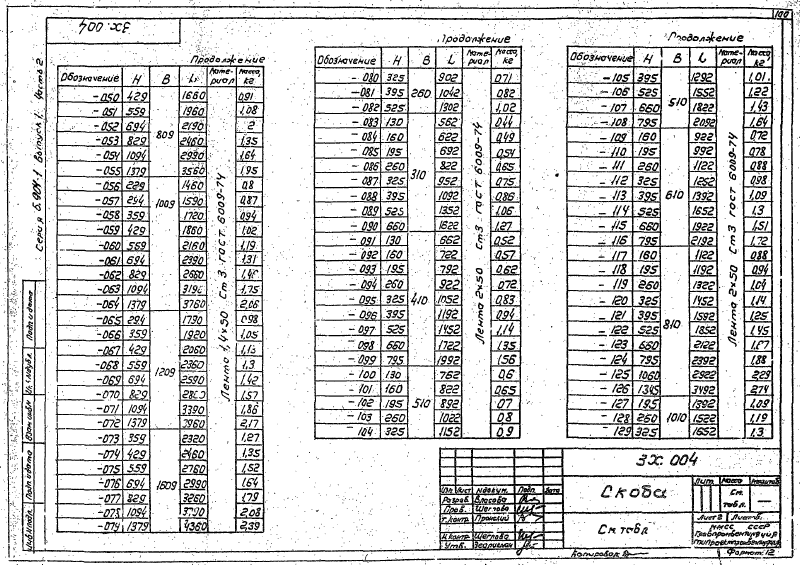 100
ЗХ. 004
Серия 5.904-1 Выпуск 1. Часть 2
Продолжение
Обозначение H B L Материал Масса, кг
Лента 1,4х50 Ст3 ГОСТ 6009-74
809
-050 429 1660 0,91
-051 559 1960 1,08
-052 694 2190 2
-053 829 2460 1,35
-054 1094 2990 1,64
-055 1379 3560 1,95
1009
-056 229 1460 0,8
-057 294 1590 0,87
-058 359 1720 0,94
-059 429 1860 1,02
-060 569 2160 1,19
-061 694 2390 1,31
-062 829 2660 1,46
-063 1094 3190 1,75
-064 1379 3760 2,06
1209
-065 294 1790 0,98
-066 359 1920 1,05
-067 429 2060 1,13
-068 559 2360 1,3
-069 694 2590 1,42
-070 829 1,57
-071 1094 3390 1,86
-072 1379 3960 2,17
1609
-073 359 2320 1,27
-074 429 2460 1,35
-075 559 2760 1,52
-076 694 2990 1,64
-077 829 3260 1,79
-078 1094 3790 2,08
-079 1379 4360 2,39
Продолжение
Обозначение H B L Материал Масса, кг
Лента 2х50 Ст3 ГОСТ 6009-74
260
-080 325 902 0,71
-081 395 1042 0,82
-082 525 1302 1,02
310
-083 130 562 0,44
-084 160 622 0,49
-085 195 692 0,54
-086 260 822 0,65
-087 325 952 0,75
-088 395 1092 0,86
-089 525 1352 1,06
-090 660 1622 1,27
410
-091 130 662 0,52
-092 160 722 0,57
-093 195 792 0,62
-094 260 922 0,72
-095 325 1052 0,83
-096 395 1192 0,94
-097 525 1452 1,14
-098 660 1722 1,35
-099 795 1992 1,56
510
-100 130 762 0,6
-101 160 822 0,65
-102 195 892 0,7
-103 260 1022 0,8
-104 325 1152 0,9
Продолжение
Обозначение H B L Материал Масса, кг
Лента 2х50 Ст3 ГОСТ 6009-74
510
-105 395 1292 1,01
-106 525 1552 1,22
-107 660 1822 1,43
-108 795 2092 1,64
610
-109 160 922 0,72
-110 195 992 0,78
-111 260 1122 0,88
-112 325 1252 0,98
-113 395 1392 1,09
-114 525 1652 1,3
-115 660 1922 1,51
-116 795 2192 1,72
810
-117 160 1122 0,88
-118 195 1192 0,94
-119 260 1322 1,04
-120 325 1452 1,14
-121 395 1592 1,25
-122 525 1852 1,45
-123 660 2122 1,67
-124 795 2392 1,88
-125 1060 2922 2,29
-126 1345 3492 2,74
1010
-127 195 1392 1,09
-128 260 1522 1,19
-129 325 1652 1,3
ЗХ 004
Скоба
См. табл.
Лит. Масса Масштаб
См. табл. —
Лист 2 Листов
ММСС СССР
Изм. Лист № докум. Подп. Дата
Разраб. Власова
Пров. Щеглова
Т.контр. Пронский
Н.контр. Щеглова
Утв.
Копировал
Формат 12
Подп. и дата
Инв. № дубл.
Взам. инв. №
Подп. и дата
Инв. № подл.